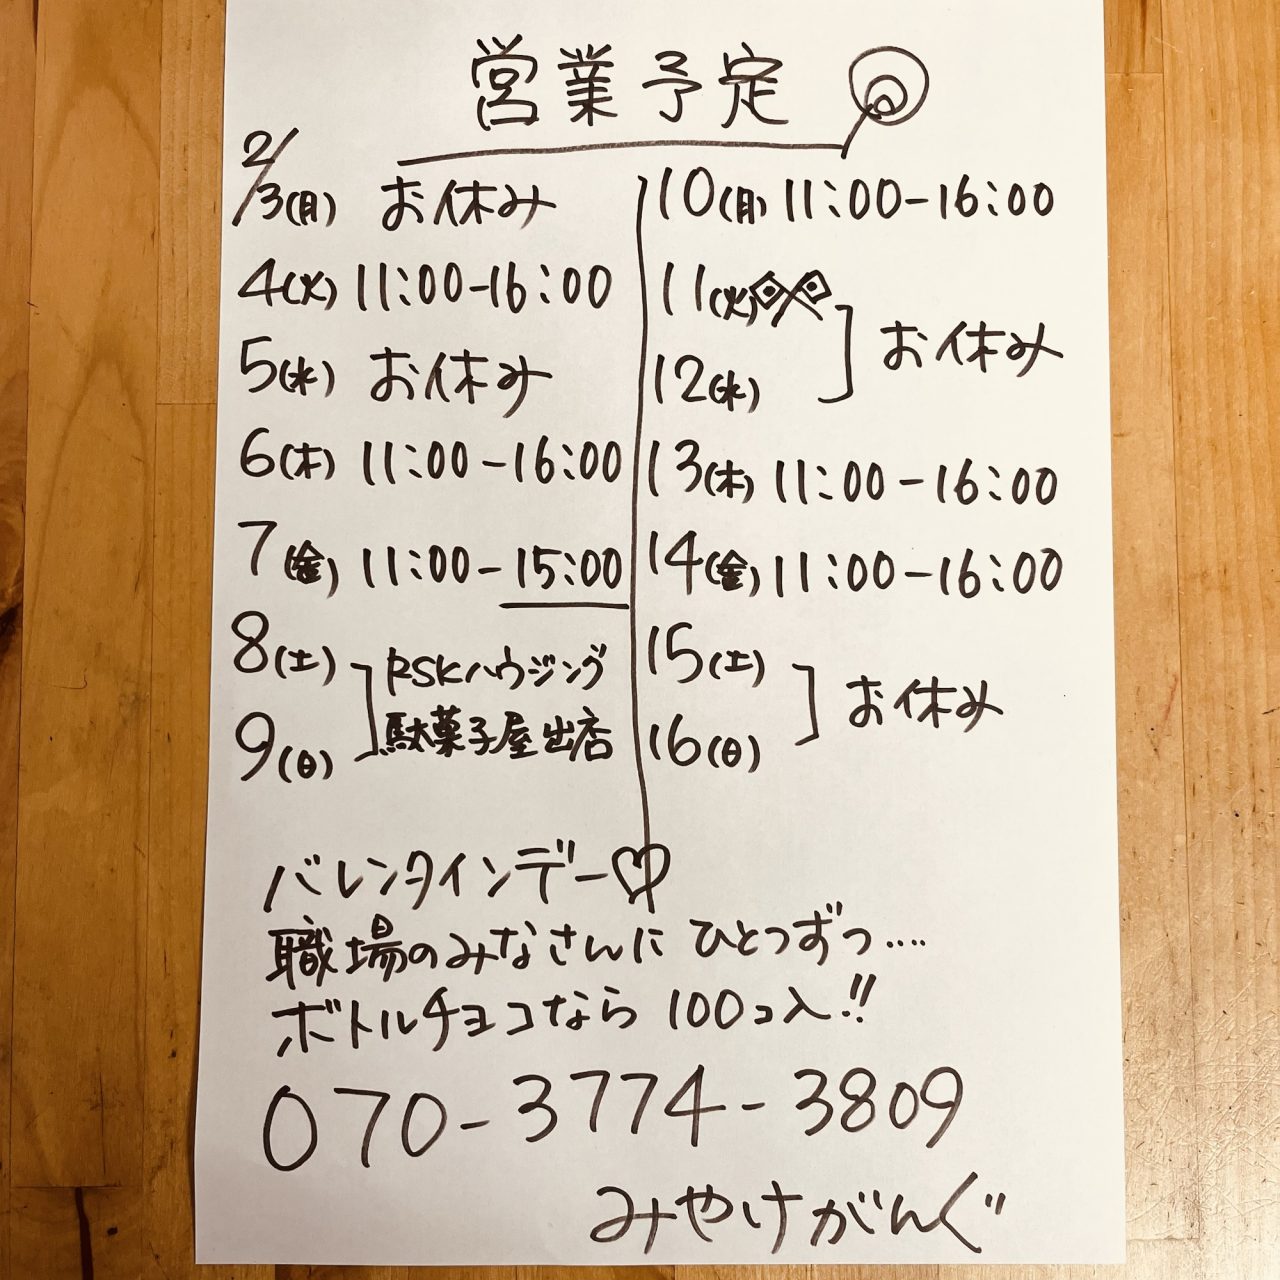 営業予定
2/3(月) お休み
4(火) 11:00-16:00
5(水) お休み
6(木) 11:00-16:00
7(金) 11:00-15:00
8(土)
9(日)
RSKハウジング
駄菓子屋出店
10(月) 11:00-16:00
11(火)
12(水)
お休み
13(木) 11:00-16:00
14(金) 11:00-16:00
15(土)
16(日)
お休み
バレンタインデー♡
職場のみなさんに ひとつずつ....
ボトルチョコなら 100コ入!!
070-3774-3809
みやけがんぐ